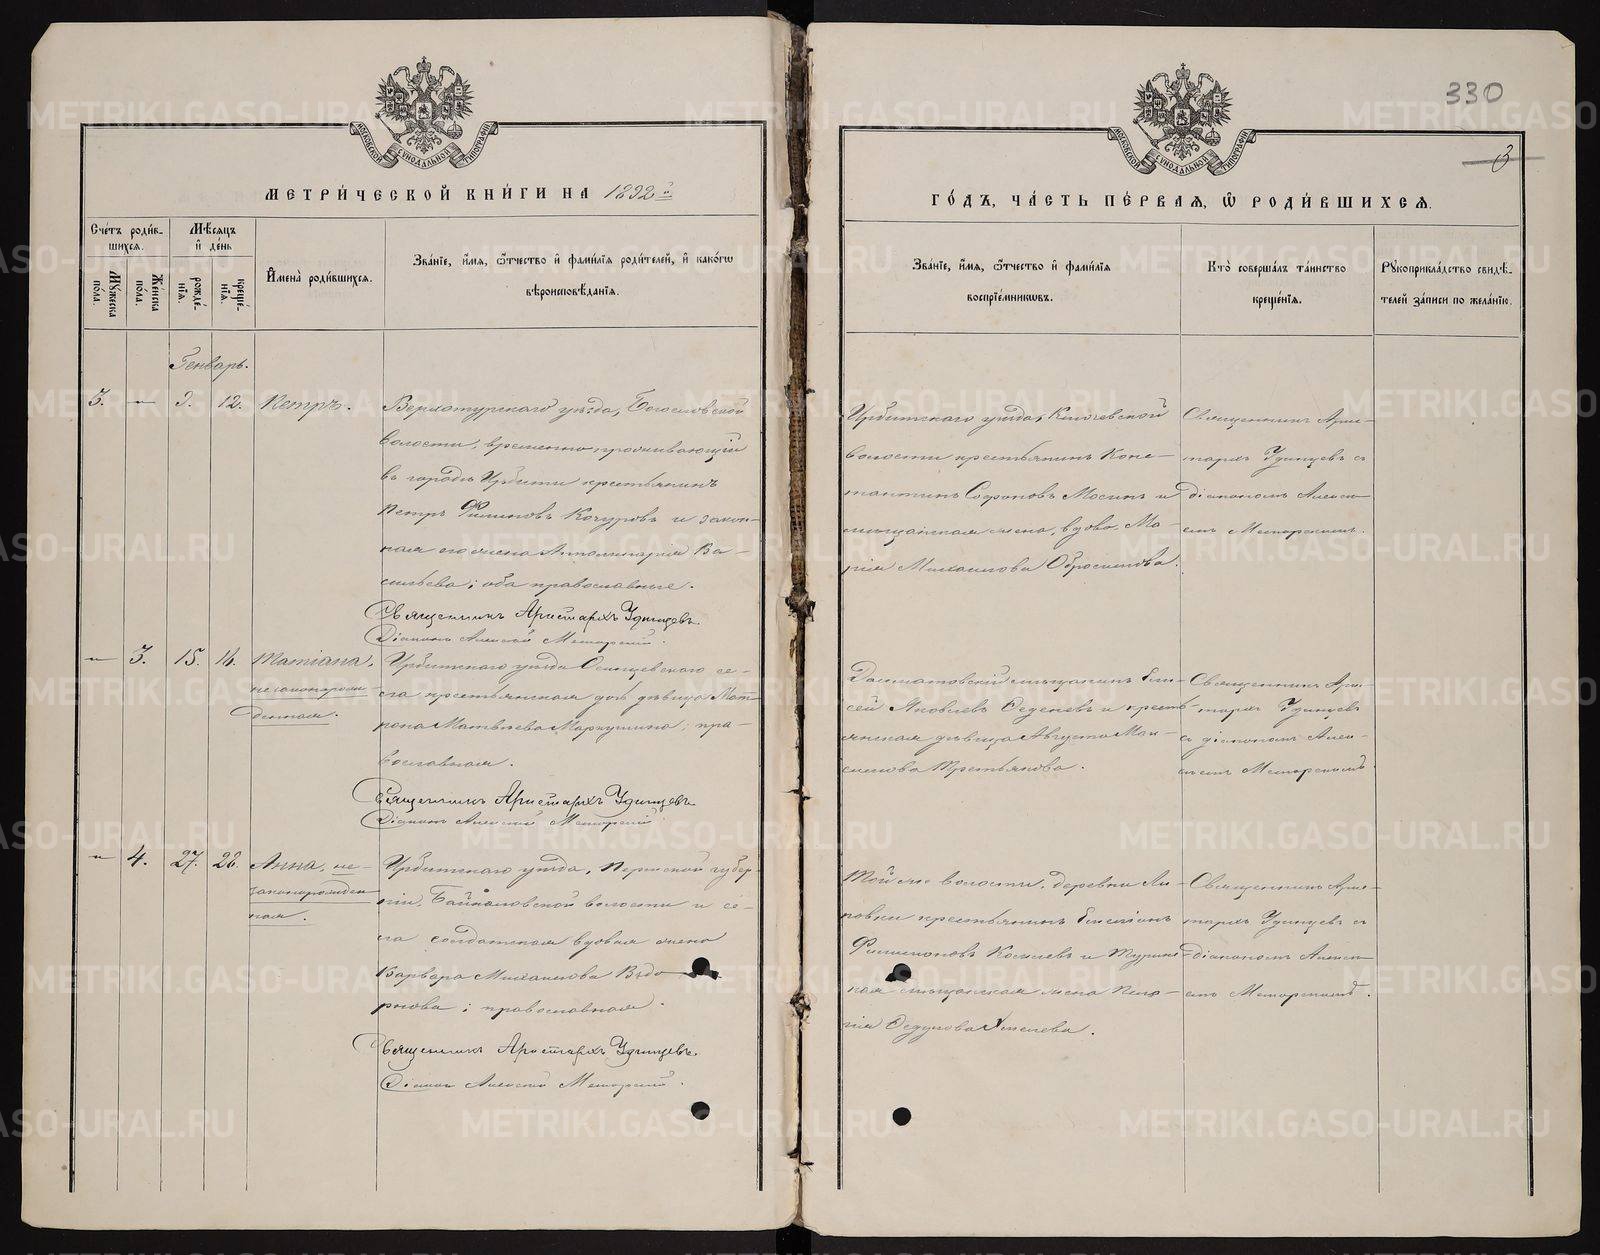 330
3
МЕТРИ́ЧЕСКОЙ КНИ́ГИ НА 1892й
ГО́ДЪ, ЧА́СТЬ ПЕ́РВАЯ, Ѡ РОДИ́ВШИХСЯ.
Сче́тъ роди́в-
шихся.
Мѣсяцъ
и де́нь
Му́жеска по́ла.
Же́нска по́ла.
рожде́-
нія.
креще́-
нія.
Имена̀ роди́вшихся.
Зва́ніе, и́мя, ѻ́тчество и фами́лія роди́телей, и како́гѡ
вѣроисповѣ́данія.
Зва́ніе, и́мя, ѻ́тчество и фами́лія
воспрі́емникѡвъ.
Кто̀ соверша́лъ та́инство
креще́нія.
Рꙋкоприкла́дство свидѣ́-
телей за́писи по жела́нію.
Генварь.
3. — 9. 12. Петръ.
Верхотурскаго уѣзда, Богословской
волости, временно проживающій
въ городѣ Ирбити крестьянинъ
Петръ Филиновъ Кочуровъ и закон-
ная его жена Апполинарія Ва-
сильева; оба православные.
Священникъ Аристархъ Удинцевъ.
Діаконъ Алексѣй Меморскій.
Ирбитскаго уѣзда, Ключевской
волости крестьянинъ Конс-
тантинъ Софоновъ Мосинъ и
мѣщанская жена, вдова Ма-
рія Михаилова Обросимова.
Священникъ Арис-
тархъ Удинцевъ съ
діакономъ Алексѣ-
емъ Меморскимъ.
— 3. 15. 16. Татіана,
незаконорож-
денная.
Ирбитскаго уѣзда Осинцевскаго се-
ла крестьянская дочь дѣвица Мат-
рона Матвѣева Маркушина; пра-
вославная.
Священникъ Аристархъ Удинцевъ
Діаконъ Алексѣй Меморскій
Далматовскій мѣщанинъ Ели-
сей Яковлевъ Феденевъ и кресть-
янская дѣвица Августа Мак-
симова Третьякова.
Священникъ Арис-
тархъ Удинцевъ
съ діакономъ Алек-
сѣемъ Меморскимъ
— 4. 27. 28. Анна, не-
законорожден-
ная.
Ирбитскаго уѣзда, Пермской губер-
ніи, Байкаловской волости и се-
ла солдатская вдовая жена
Варвара Михаилова Вздо-
рнова; православная.
Священникъ Аристархъ Удинцевъ.
Діаконъ Алексѣй Меморскій.
Той же волости, деревни Ли-
повки крестьянинъ Емеліанъ
Филимоновъ Косилевъ и Турин-
ская мѣщанская жена Пела-
гія Федулова Хмелева.
Священникъ Арис-
тархъ Удинцевъ съ
діакономъ Алексѣ-
емъ Меморскимъ.
METRIKI.GASO-URAL.RU